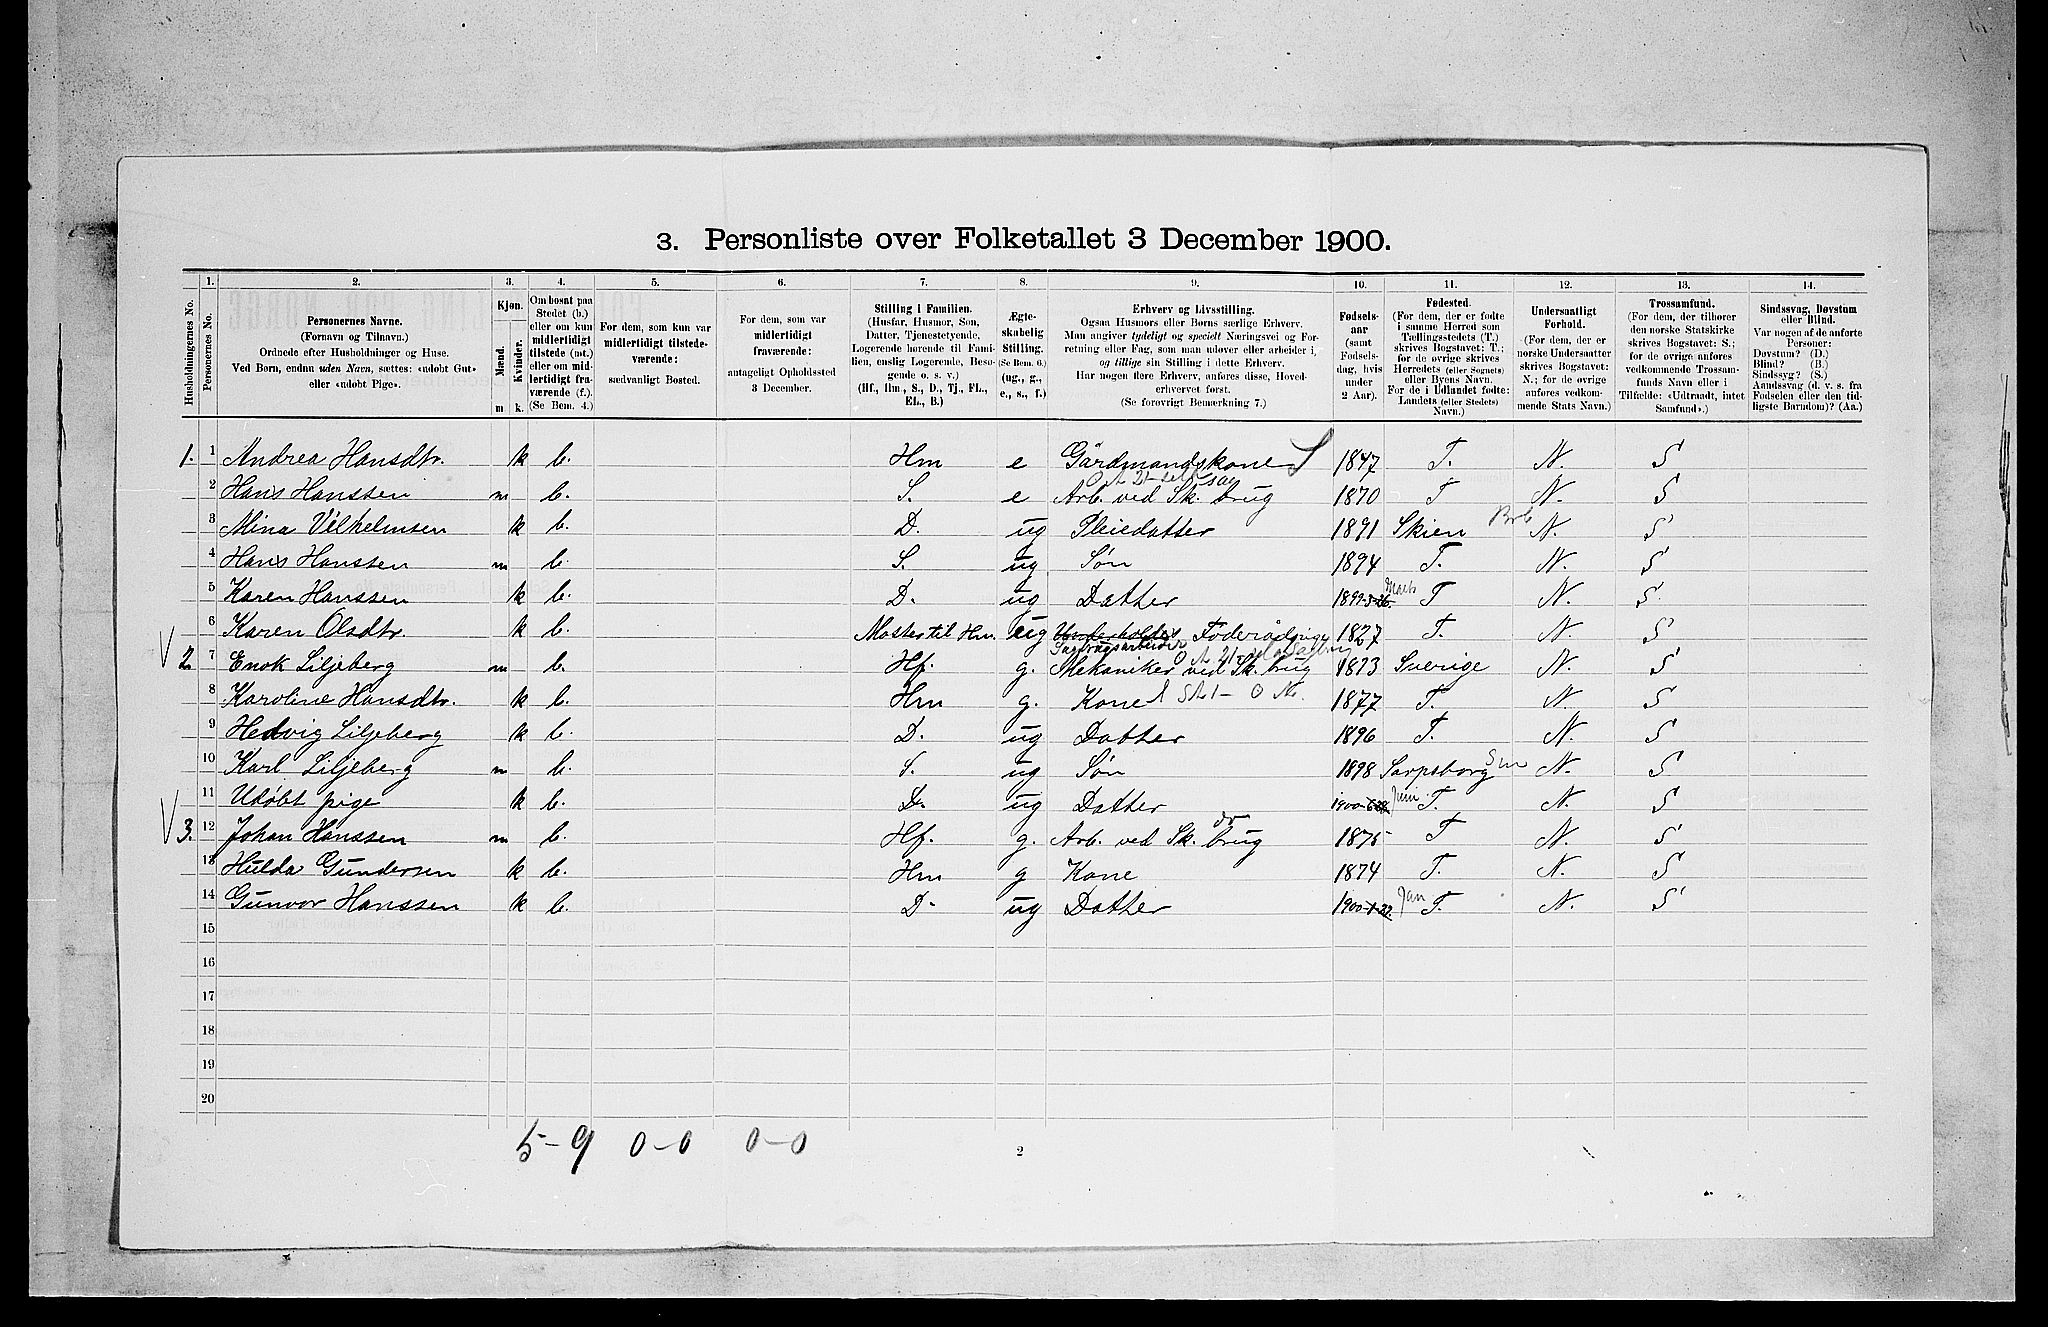 3. Personliste over Folketallet 3 December 1900.
1. 2. 3. 4. 5. 6. 7. 8. 9. 10. 11. 12. 13. 14.
Husholdningernes No.
Personernes No.
Personernes Navne.
(Fornavn og Tilnavn.)
Ordnede efter Husholdninger og Huse.
Ved Børn, endnu uden Navn, sættes: «udøbt Gut»
eller «udøbt Pige».
Kjøn.
Mænd.
Kvinder.
m k.
Om bosat paa
Stedet (b.)
eller om kun
midlertidigt
tilstede (mt.)
eller om mid-
lertidigt fra-
værende (f.).
(Se Bem. 4.)
For dem, som kun var
midlertidigt tilstede-
værende:
sædvanligt Bosted.
For dem, som var
midlertidigt
fraværende:
antageligt Opholdssted
3 December.
Stilling i Familien.
(Husfar, Husmor, Søn,
Datter, Tjenestetyende,
Logerende hørende til Fami-
lien, enslig Logerende, Besø-
gende o. s. v.)
(Hf., Hm., S., D., Tj., FL.,
EL., B.)
Ægte-
skabelig
Stilling.
(Se Bem. 6.)
(ug., g.,
e., s., f.)
Erhverv og Livsstilling.
Ogsaa Husmors eller Børns særlige Erhverv.
Man angiver tydeligt og specielt Næringsvei og For-
retning eller Fag, som man udøver eller arbeider i,
og tillige sin Stilling i dette Erhverv.
Har nogen flere Erhverv, anføres disse, Hoved-
erhvervet først.
(Se forøvrigt Bemærkning 7.)
Fødsels-
aar
(samt
Fødsels-
dag, hvis
under
2 Aar).
Fødested.
(For dem, der er fødte
i samme Herred som
Tællingsstedets (T.)
skrives Bogstavet: T.;
for de øvrige skrives
Herredets (eller Sognets)
eller Byens Navn.
For de i Udlandet fødte:
Landets (eller Stedets)
Navn.)
Undersaatligt
Forhold.
(For dem, der er
norske Undersaatter
skrives Bogstavet:
N.; for de øvrige
anføres vedkom-
mende Stats Navn.)
Trossamfund.
(For dem, der tilhører
den norske Statskirke
skrives Bogstavet: S.;
for de øvrige anføres
vedkommende Trossam-
funds Navn eller i
Tilfælde: «Udtraadt, intet
Samfund».)
Sindssvag, Døvstum
eller Blind.
Var nogen af de anførte
Personer:
Døvstum? (D.)
Blind? (B.)
Sindssyg? (S.)
Aandssvag (d. v. s. fra
Fødselen eller den tid-
ligste Barndom)? (Aa.)
1. 1 Andrea Hansdtr. k b. Hm e Gårdmandskone 1847 T. N. S
2 Hans Hanssen m b. S. e Arb. ved Sk. brug 1870 T N. S
3 Mina Vilhelmsen k b. D. ug Pleiedatter 1891 Skien Brb N. S
4 Hans Hanssen m b. S. ug Søn 1894 T. N. S
5 Karen Hanssen k b. D. ug Datter 1899 Marts T N. S
6 Karen Olsdtr. k b. Moster til Hm. ug Underholdes Føderådspige 1827 T. N. S
V 2. 7 Enok Liljeberg m b. Hf. g. Mekaniker ved Sk. brug 1873 Sverige N. S
Sagbrugsarbeider
8 Karoline Hansdtr. k b. Hm g. Kone 1877 T. N. S
9 Hedvig Liljeberg k b. D. ug Datter 1896 T. N. S
10 Karl Liljeberg m b. S. ug Søn 1898 Sarpsborg Sm N. S
11 Udøbt pige k b. D. ug Datter 1900 Juni T. N. S
V 3. 12 Johan Hanssen m b. Hf. g. Arb. ved Sk. brug do 1875 T N. S
13 Hulda Gundersen k b. Hm g Kone 1874 T. N. S
14 Gunvor Hanssen k b. D. ug Datter 1900-1-22. Jan T. N. S
15
16
17
18
19
20
5-9 0-0 0-0
2